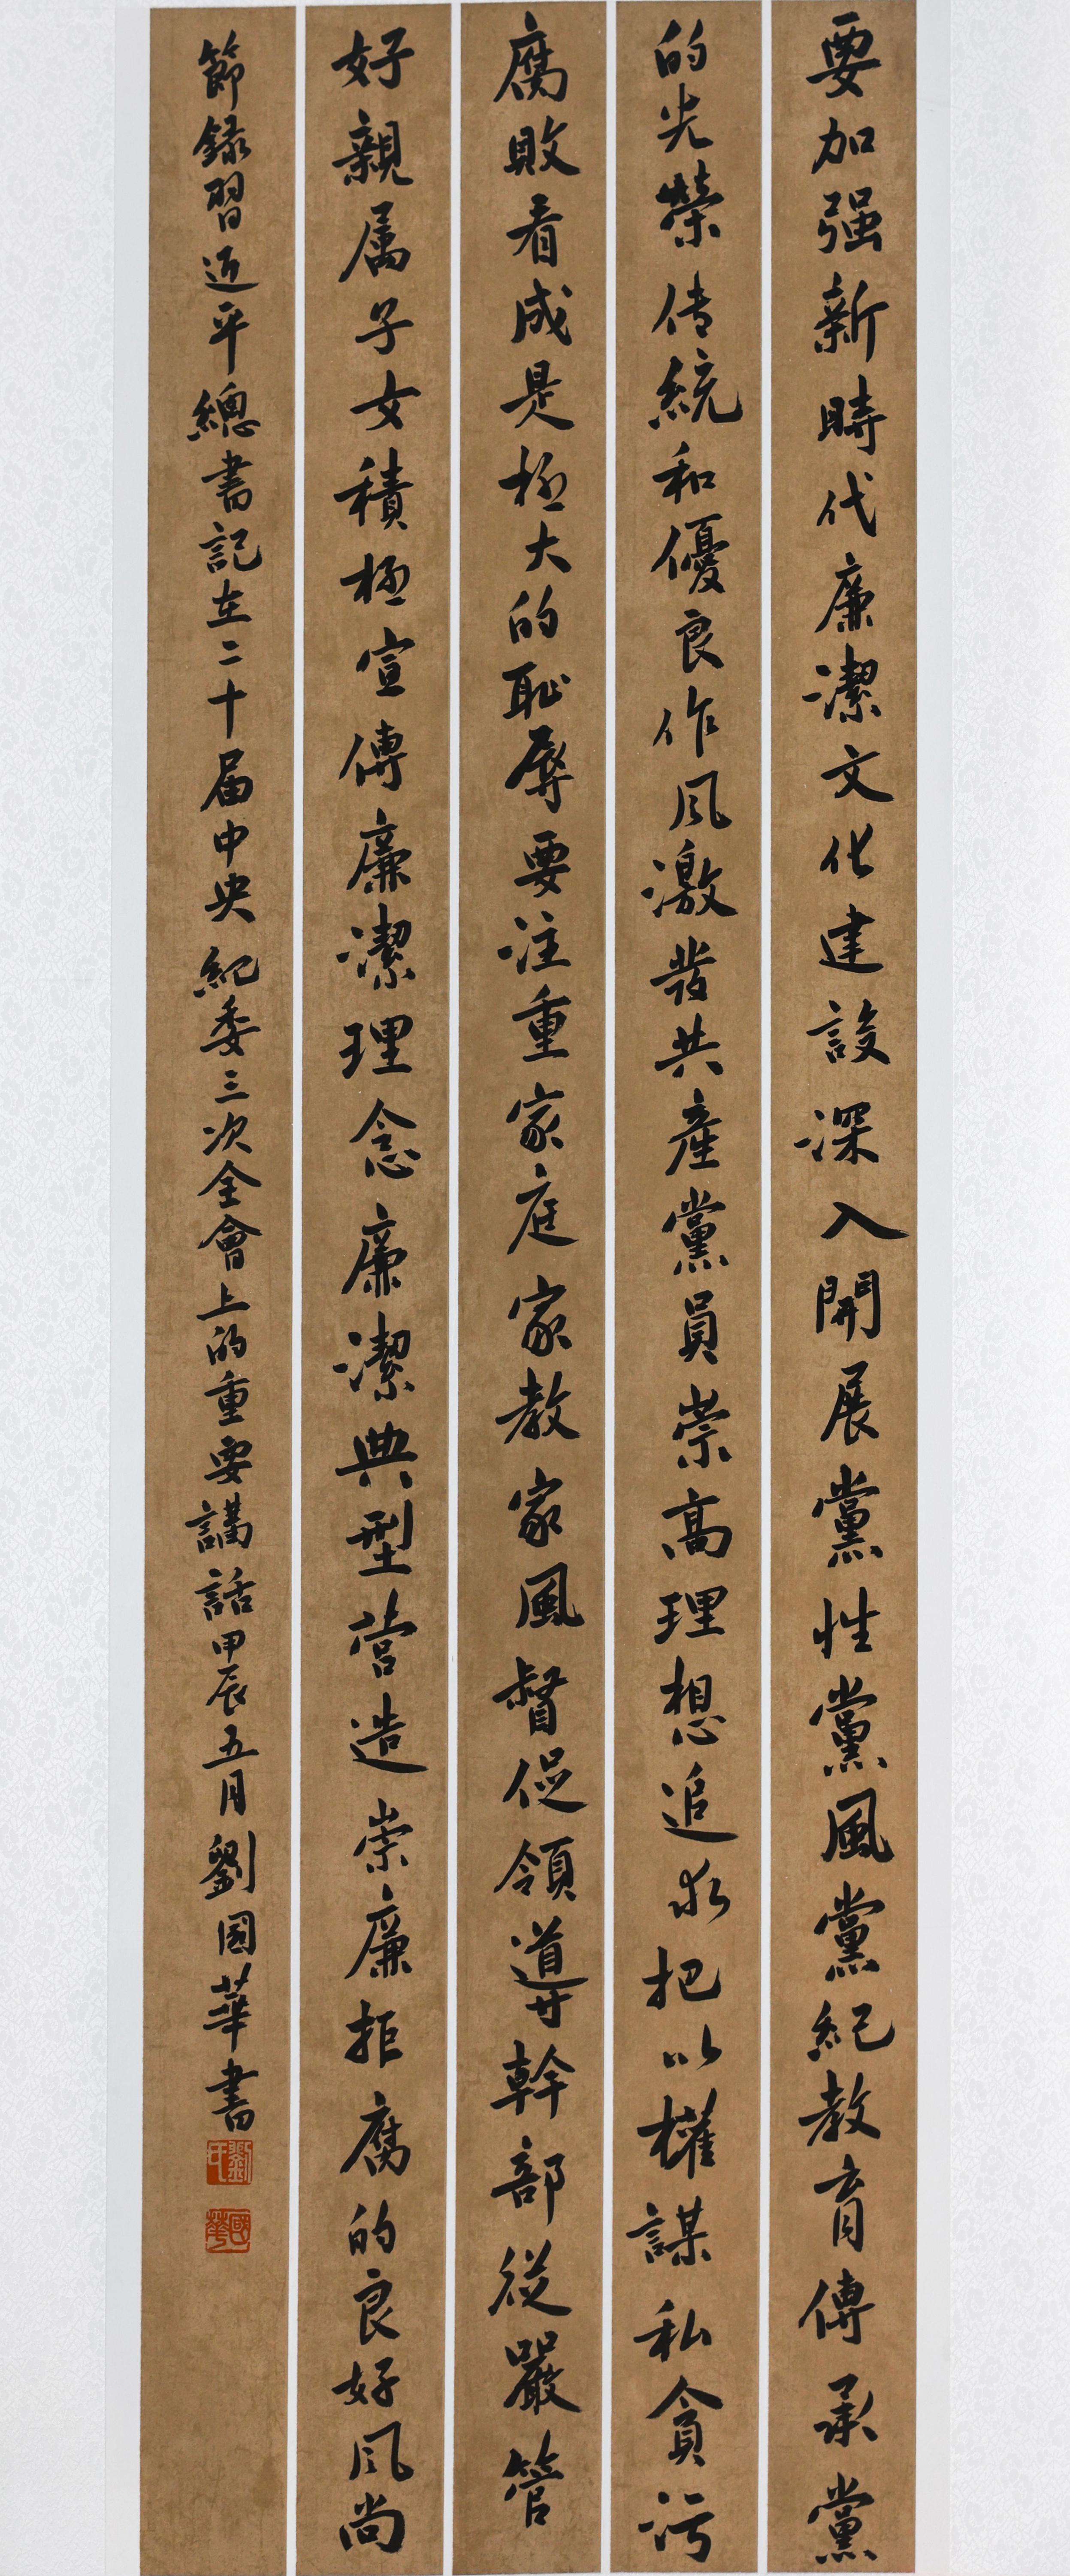 要加强新時代廉潔文化建設深入開展黨性黨風黨紀教育傳承黨
的光榮传統和優良作风激發共產黨員崇高理想追求把以權謀私貪污
腐敗看成是极大的恥辱要注重家庭家教家風督促領導幹部從嚴管
好親属子女積极宣傳廉潔理念廉潔典型营造崇廉拒腐的良好风尚
節録習近平總書記在二十届中央紀委三次全會上的重要講話甲辰五月劉國華書
劉氏
國華